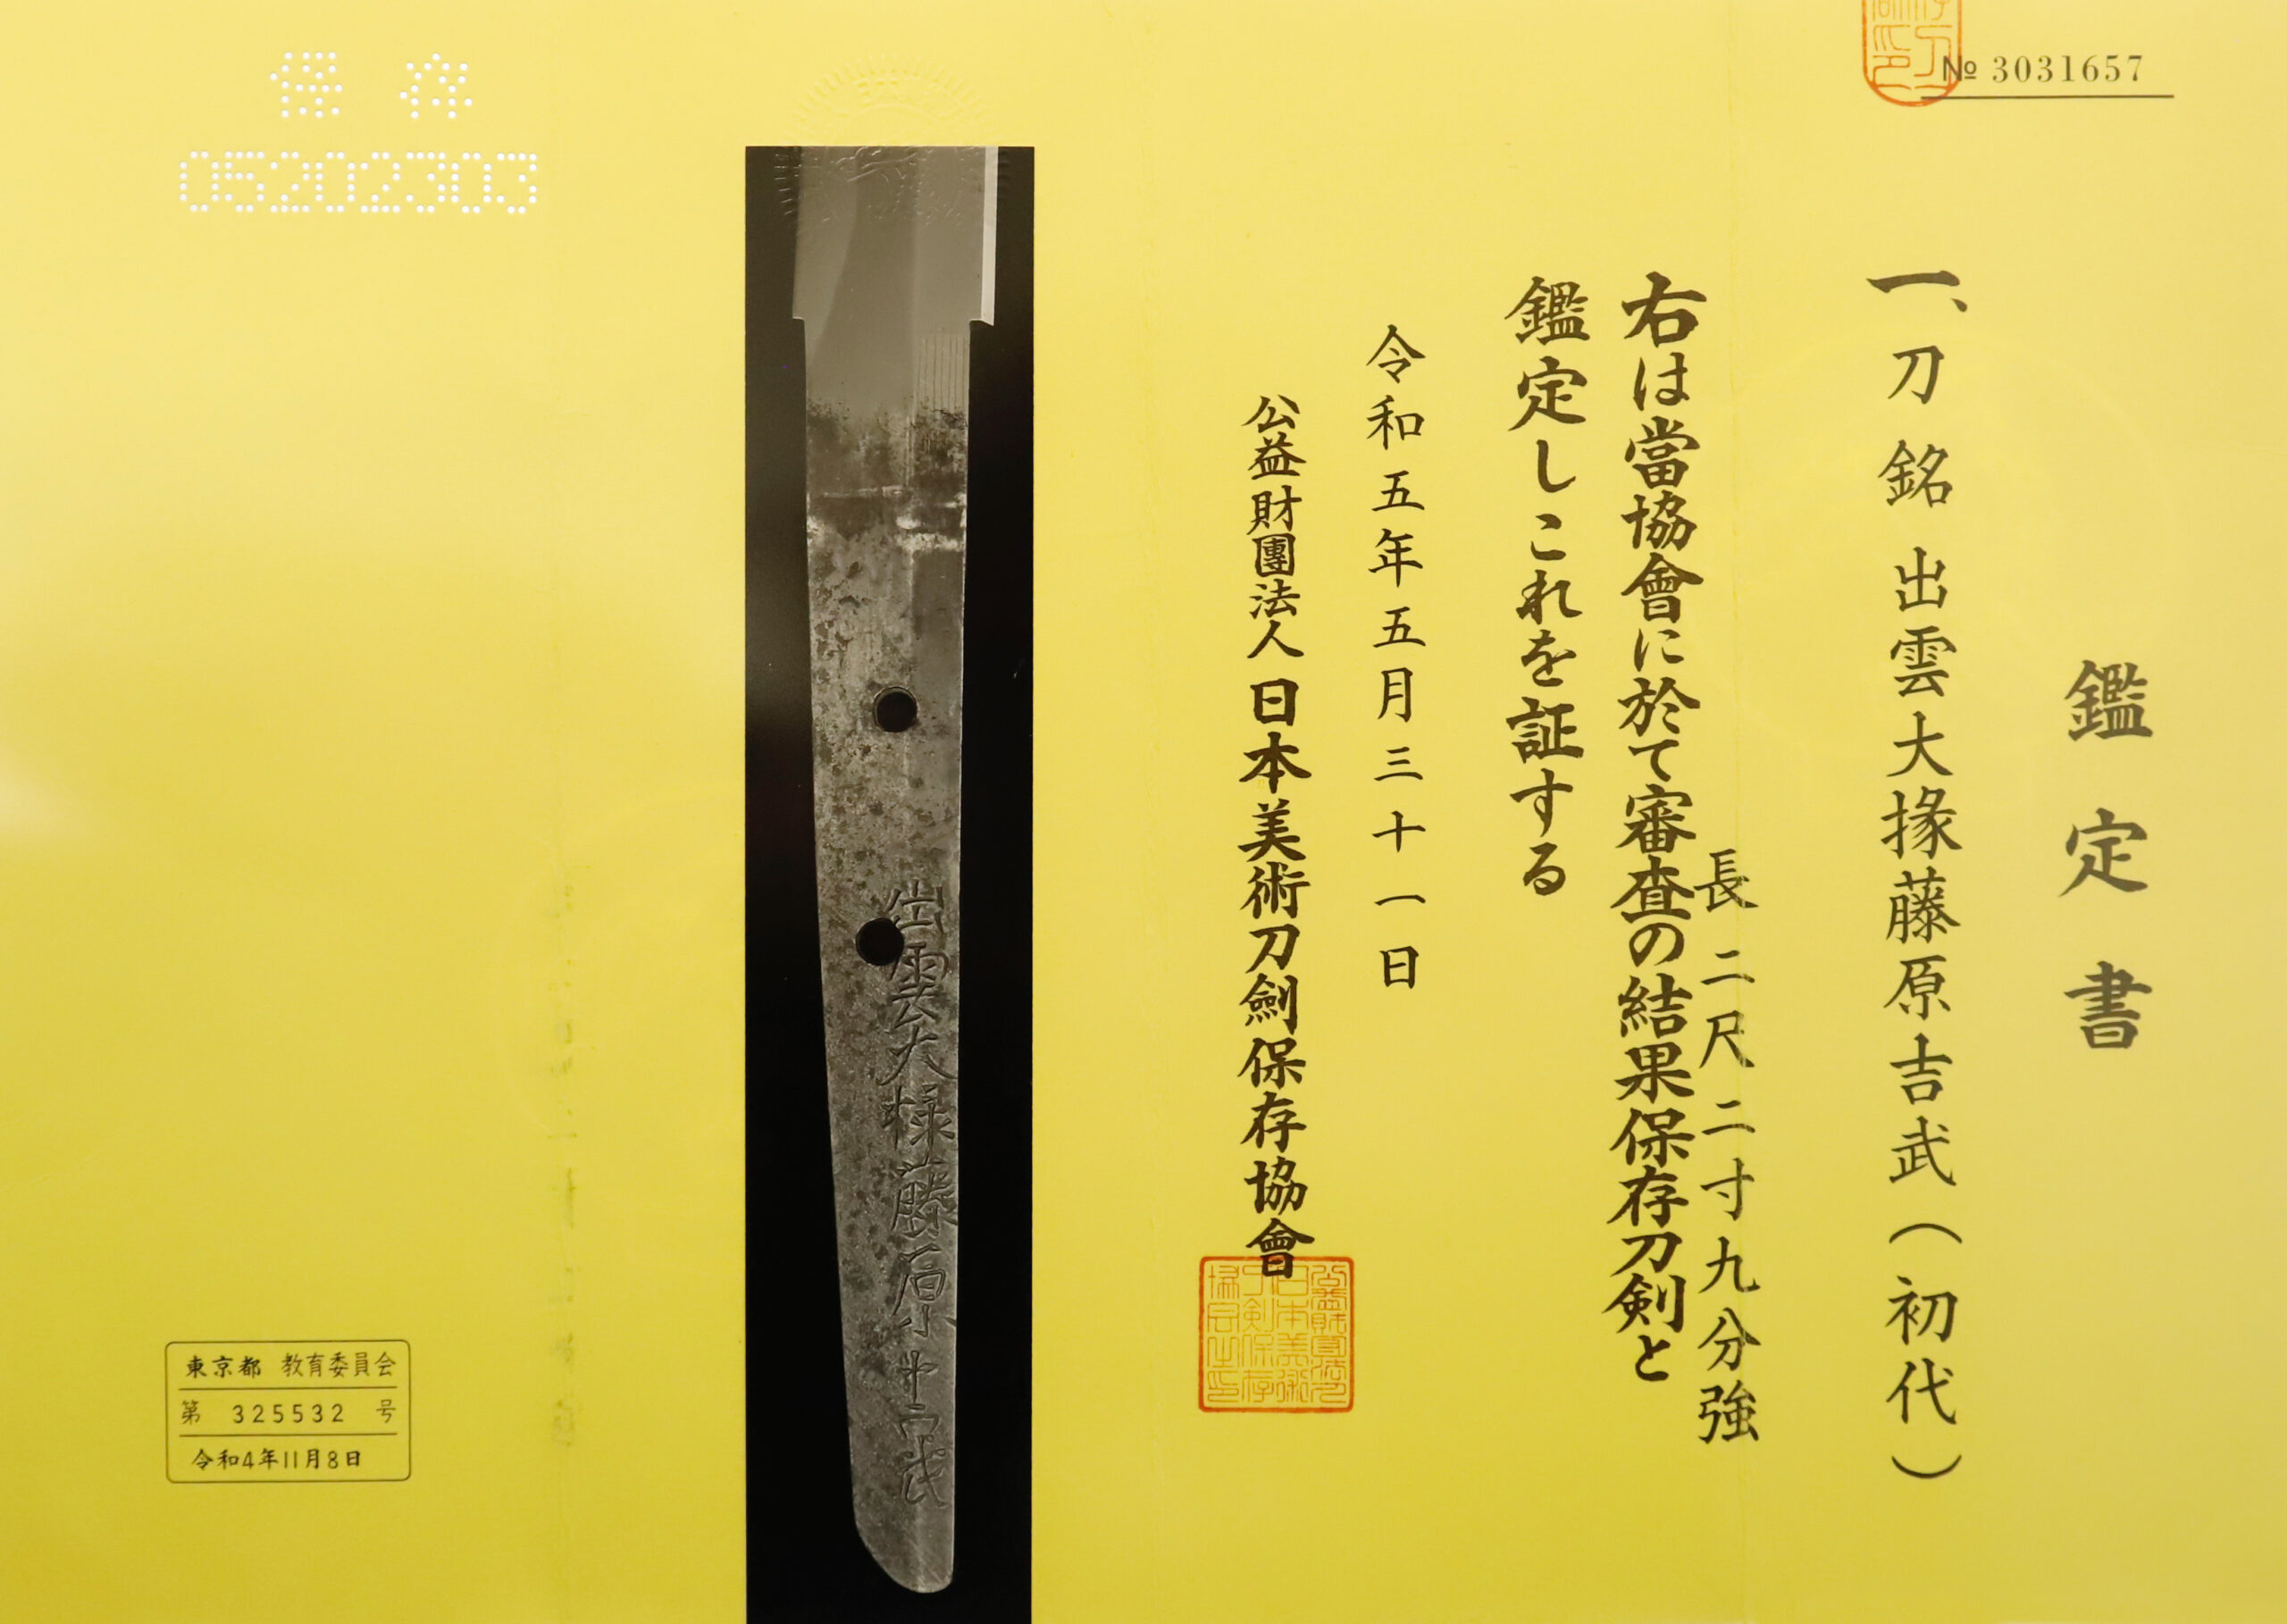 № 3031657
鑑定書
一、刀 銘 出雲大掾藤原吉武（初代）
長二尺二寸九分強
右は當協會に於て審査の結果保存刀剣と
鑑定しこれを証する
令和五年五月三十一日
公益財團法人 日本美術刀劍保存協會
出雲大掾藤原吉武
保存
05202303
東京都 教育委員会
第 325532 号
令和4年11月8日